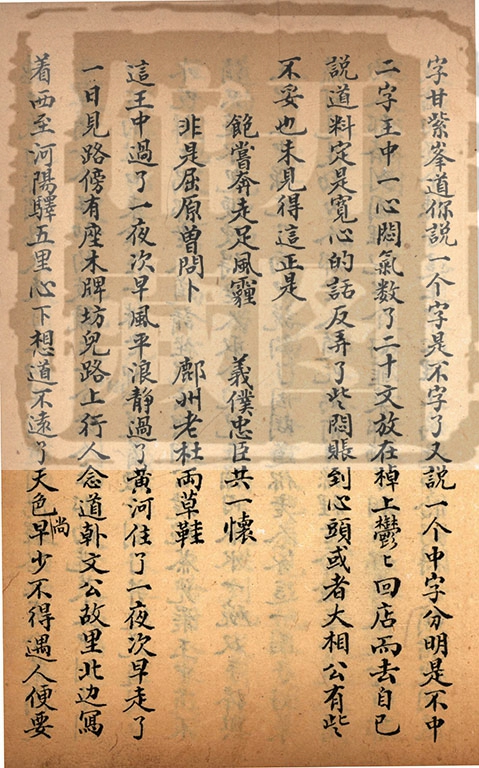 字甘紫峯道你說一个字是不字了又說一个中字分明是不中
二字王中一心悶氣数了二十文放在棹上鬱〻回店而去自己
說道料定是寬心的話反弄了些悶賬到心頭或者大相公有些
不妥也未見得這正是
飽嘗奔走足風霾 義僕忠臣共一懷
非是屈原曾問卜 鄜州老杜兩草鞋
這王中過了一夜次早風平浪静過了黄河住了一夜次早走了
一日見路傍有座木牌坊兒路上行人念道韩文公故里北边寫
着西至河陽驛五里心下想道不遠了天色尚早少不得遇人便要